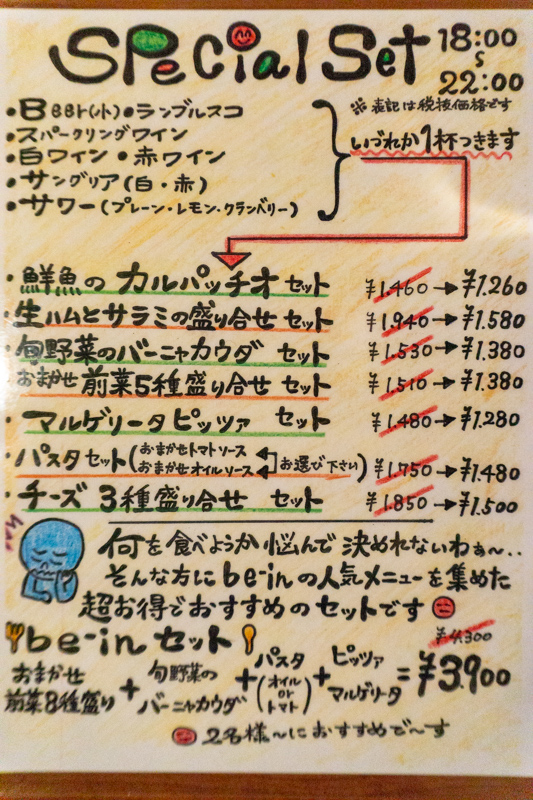 Special Set 18:00
〜
22:00
※表記は税抜価格です
・Beer(小)・ランブルスコ
・スパークリングワイン
・白ワイン・赤ワイン
・サングリア(白・赤)
・サワー(プレーン・レモン・クランベリー)
いづれか1杯つきます
・鮮魚のカルパッチオセット ¥1.460→¥1.260
・生ハムとサラミの盛り合せセット ¥1.940→¥1.580
・旬野菜のバーニャカウダセット ¥1.530→¥1.380
・おまかせ前菜5種盛り合せセット ¥1.510→¥1.380
・マルゲリータピッツァ セット ¥1.480→¥1.280
・パスタセット(おまかせトマトソース
おまかせオイルソース お選び下さい) ¥1.750→¥1.480
・チーズ3種盛り合せ セット ¥1.850→¥1.500
何を食べようか悩んで決めれないわぁ〜..
そんな方にbe-inの人気メニューを集めた
超お得でおすすめのセットです
be-inセット ¥4.300
おまかせ前菜8種盛り+旬野菜のバーニャカウダ+パスタ(オイルorトマト)+ピッツァマルゲリータ=¥3.900
2名様〜におすすめで〜す